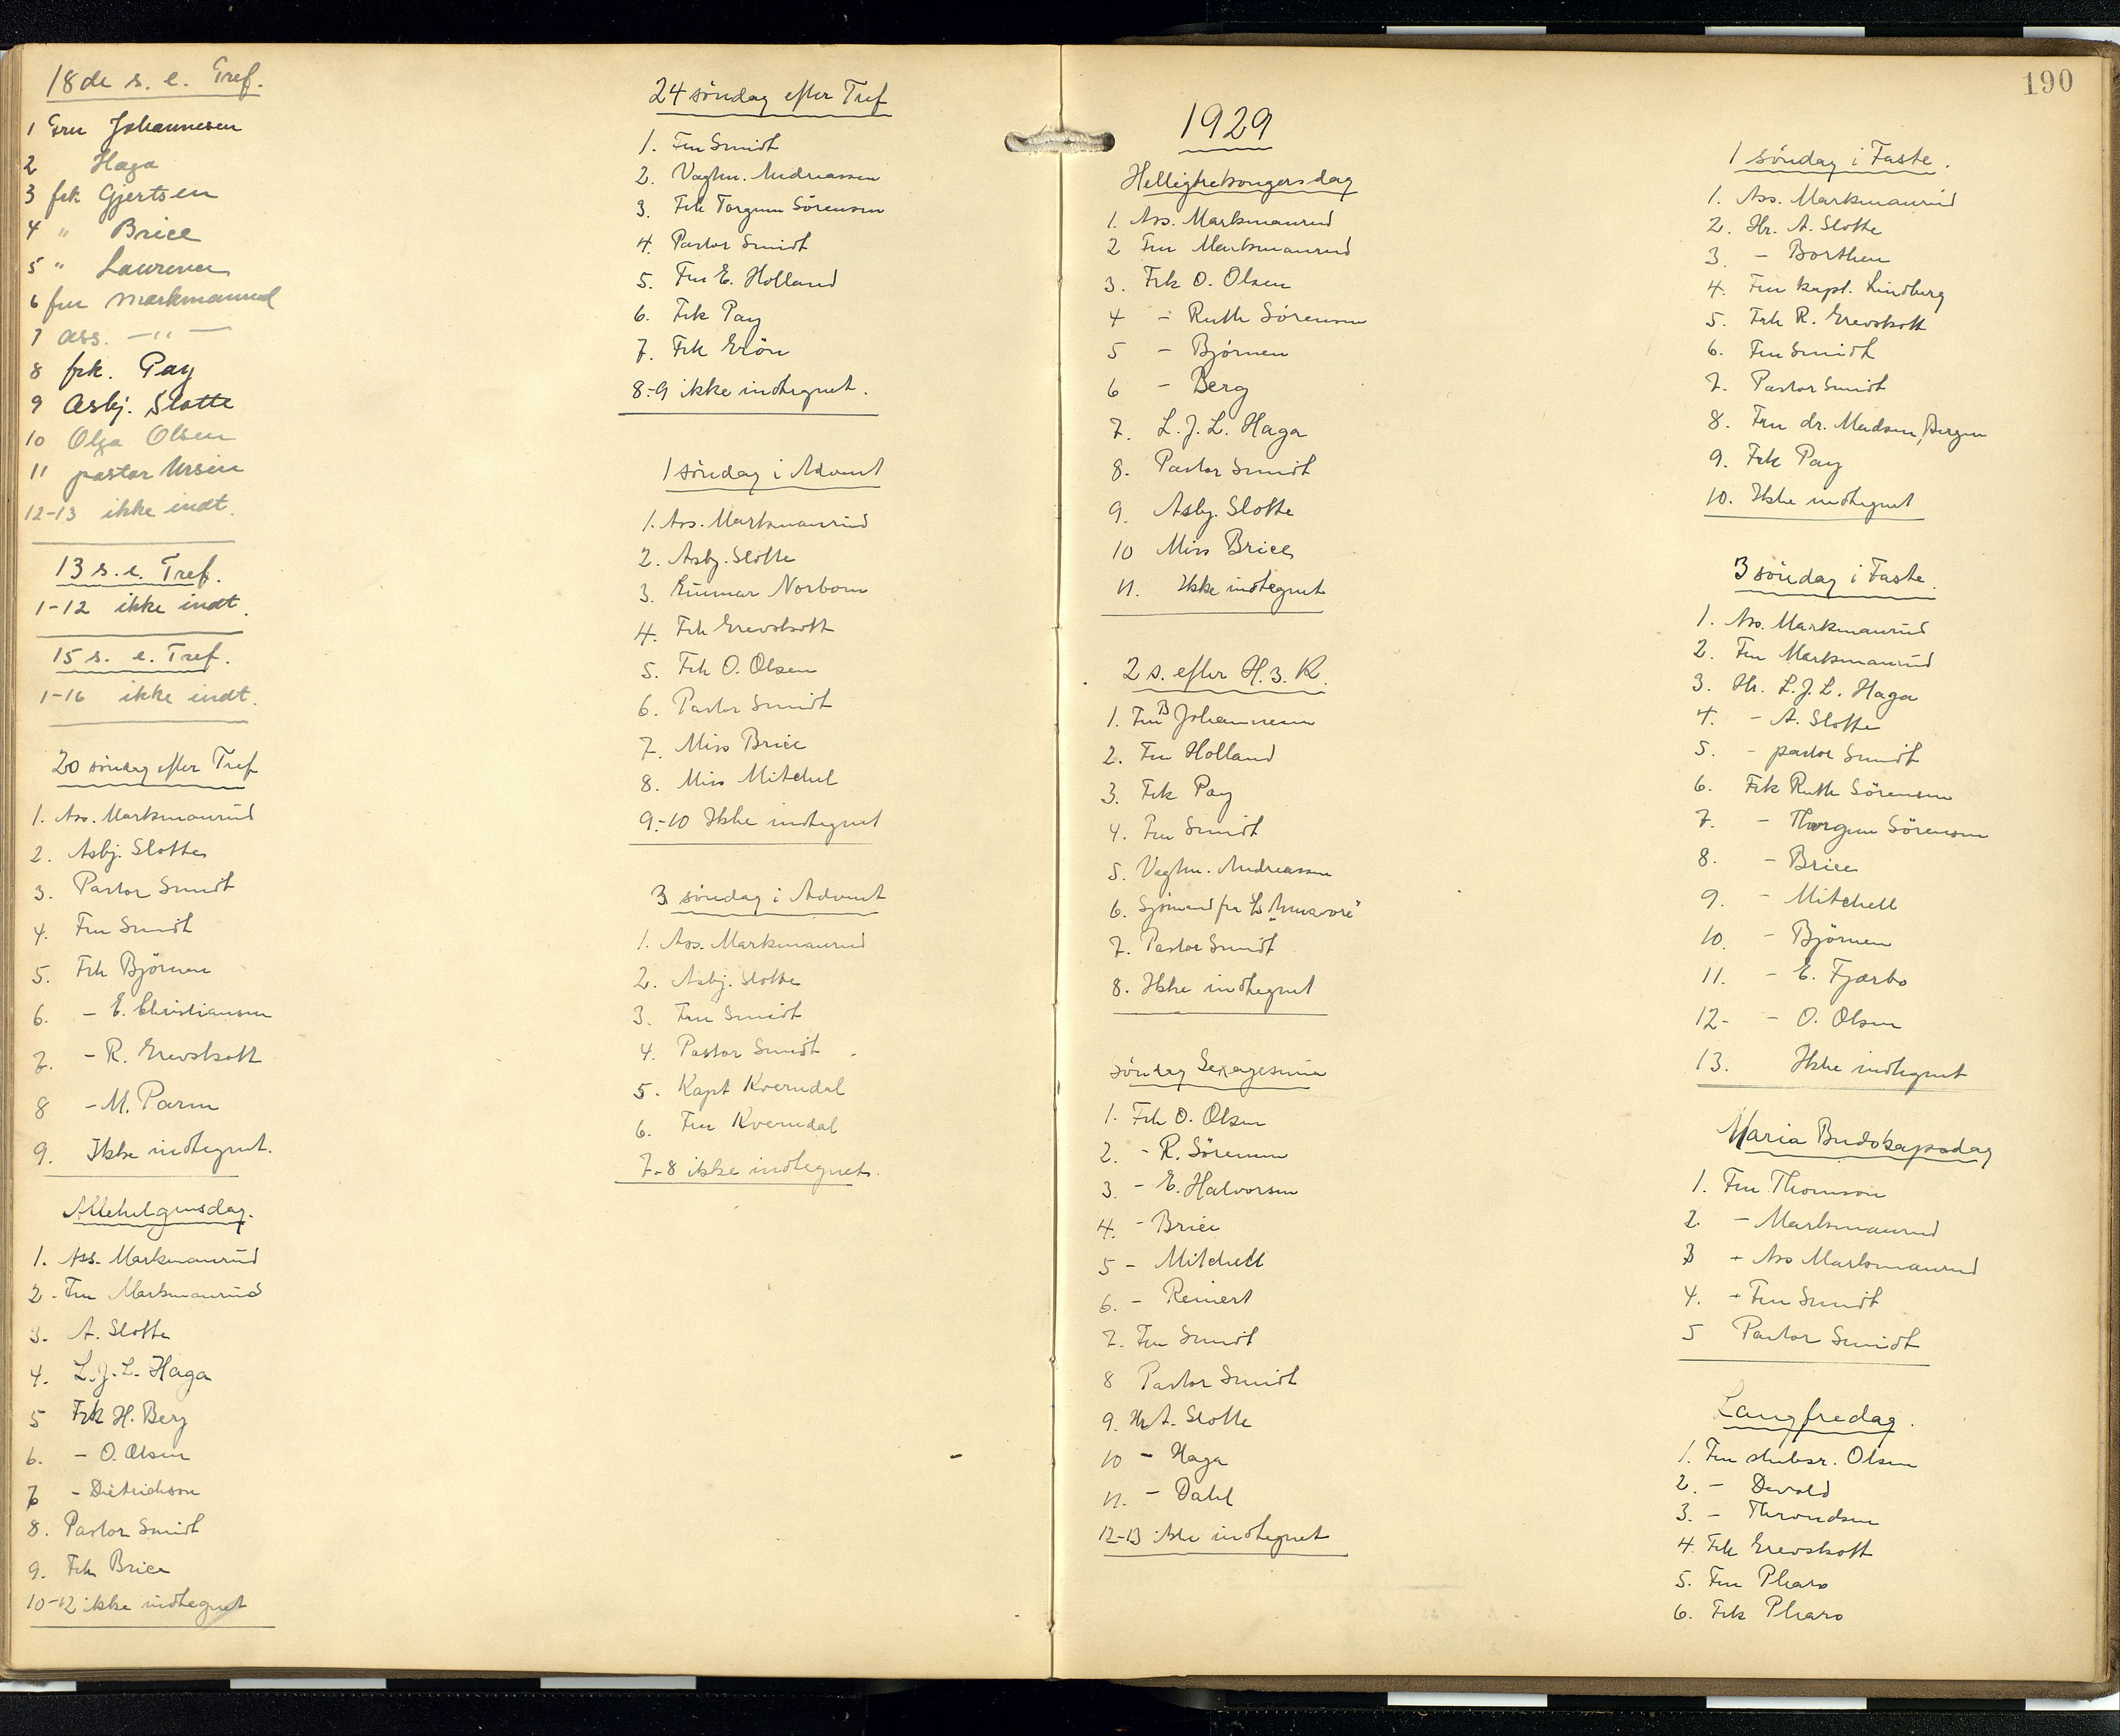 18de s. e. Tref.
1 Fru Johannesen
2 Haga
3 frk Gjertsen
4 " Brice
5 " Laurence
6 fru Markmanrud
7 ass. —"—
8 frk. Pay
9 Asbj. Slotte
10 Olga Olsen
11 pastor Ursin
12-13 ikke indt.
13 s. e. Tref.
1-12 ikke indt.
15 s. e. Tref.
1-16 ikke indt.
20 søndag efter Tref
1. Ass. Markmanrud
2. Asbj. Slotte
3. Pastor Smidt
4. Fru Smidt
5. Frk Bjørnen
6. - E. Christiansen
7. - R. Grevskott
8 - M. Parm
9. Ikke indtegnet.
Allehelgensdag.
1. Ass. Markmanrud
2. Fru Markmanrud
3. A. Slotte
4. L. J. L. Haga
5 Frk H. Berg
6. - O. Olsen
7 - Dietrichson
8. Pastor Smidt
9. Frk Brice
10-12 ikke indtegnet
24 søndag efter Tref
1. Fru Smidt
2. Vaghn. Andreassen
3. Frk Torgunn Sørensen
4. Pastor Smidt
5. Fru E. Holland
6. Frk Pay
7. Frk Grön
8-9 ikke indtegnet.
1 søndag i Advent
1. Ass. Markmanrud
2. Asbj. Slotte
3. Gunnar Norbom
4. Frk Grevskott
5. Frk O. Olsen
6. Pastor Smidt
7. Miss Brice
8. Miss Mitchel
9-10 Ikke indtegnet
3 søndag i Advent
1. Ass. Markmanrud
2. Asbj. Slotte
3. Fru Smidt
4. Pastor Smidt
5. Kapt Kverndal
6. Fru Kverndal
7-8 ikke indtegnet.
190
1929
Helligtrekongersdag
1. Ass. Markmanrud
2 Fru Markmanrud
3. Frk O. Olsen
4 - Ruth Sørensen
5 - Bjørnen
6 - Berg
7. L. J. L. Haga
8. Pastor Smidt
9. Asbj. Slotte
10 Miss Brice
11. Ikke indtegnet
2 s. efter H. 3. K.
1. Fru B Johannesen
2. Fru Holland
3. Frk Pay
4. Fru Smidt
5. Vaghn. Andreassen
6. Sjömand fra
7. Pastor Smidt
8. Ikke indtegnet
Søndag Sexagesima
1. Frk O. Olsen
2. - R. Sørensen
3. - E. Halvorsen
4. - Brice
5 - Mitchell
6. - Reinert
7. Fru Smidt
8 Pastor Smidt
9. Hr A. Slotte
10 - Haga
11. - Dahl
12-13 ikke indtegnet
1 søndag i Faste.
1. Ass. Markmanrud
2. Hr. A. Slotte
3. - Borthen
4. Fru kapt. Lindberg
5. Frk R. Grevskott
6. Fru Smidt
7. Pastor Smidt
8. Fru dr. Madsen, Bergen
9. Frk Pay
10. Ikke indtegnet
3 søndag i Faste.
1. Ass. Markmanrud
2. Fru Markmanrud
3. Hr. L. J. L. Haga
4. - A. Slotte
5. - pastor Smidt
6. Frk Ruth Sørensen
7. - Thorgun Sørensen
8. - Brice
9. - Mitchell
10. - Bjørnen
11. - E. Fjærbo
12- - O. Olsen
13. Ikke indtegnet
Maria Budskapsdag
1. Fru Thomson
2. - Markmanrud
3 + Ass Markmanrud
4. + Fru Smidt
5 Pastor Smidt
Langfredag.
1. Fru skibsr. Olsen
2. - Devold
3. - Throndsen
4. Frk Grevskott
5. Fru Pharo
6. Frk Pharo